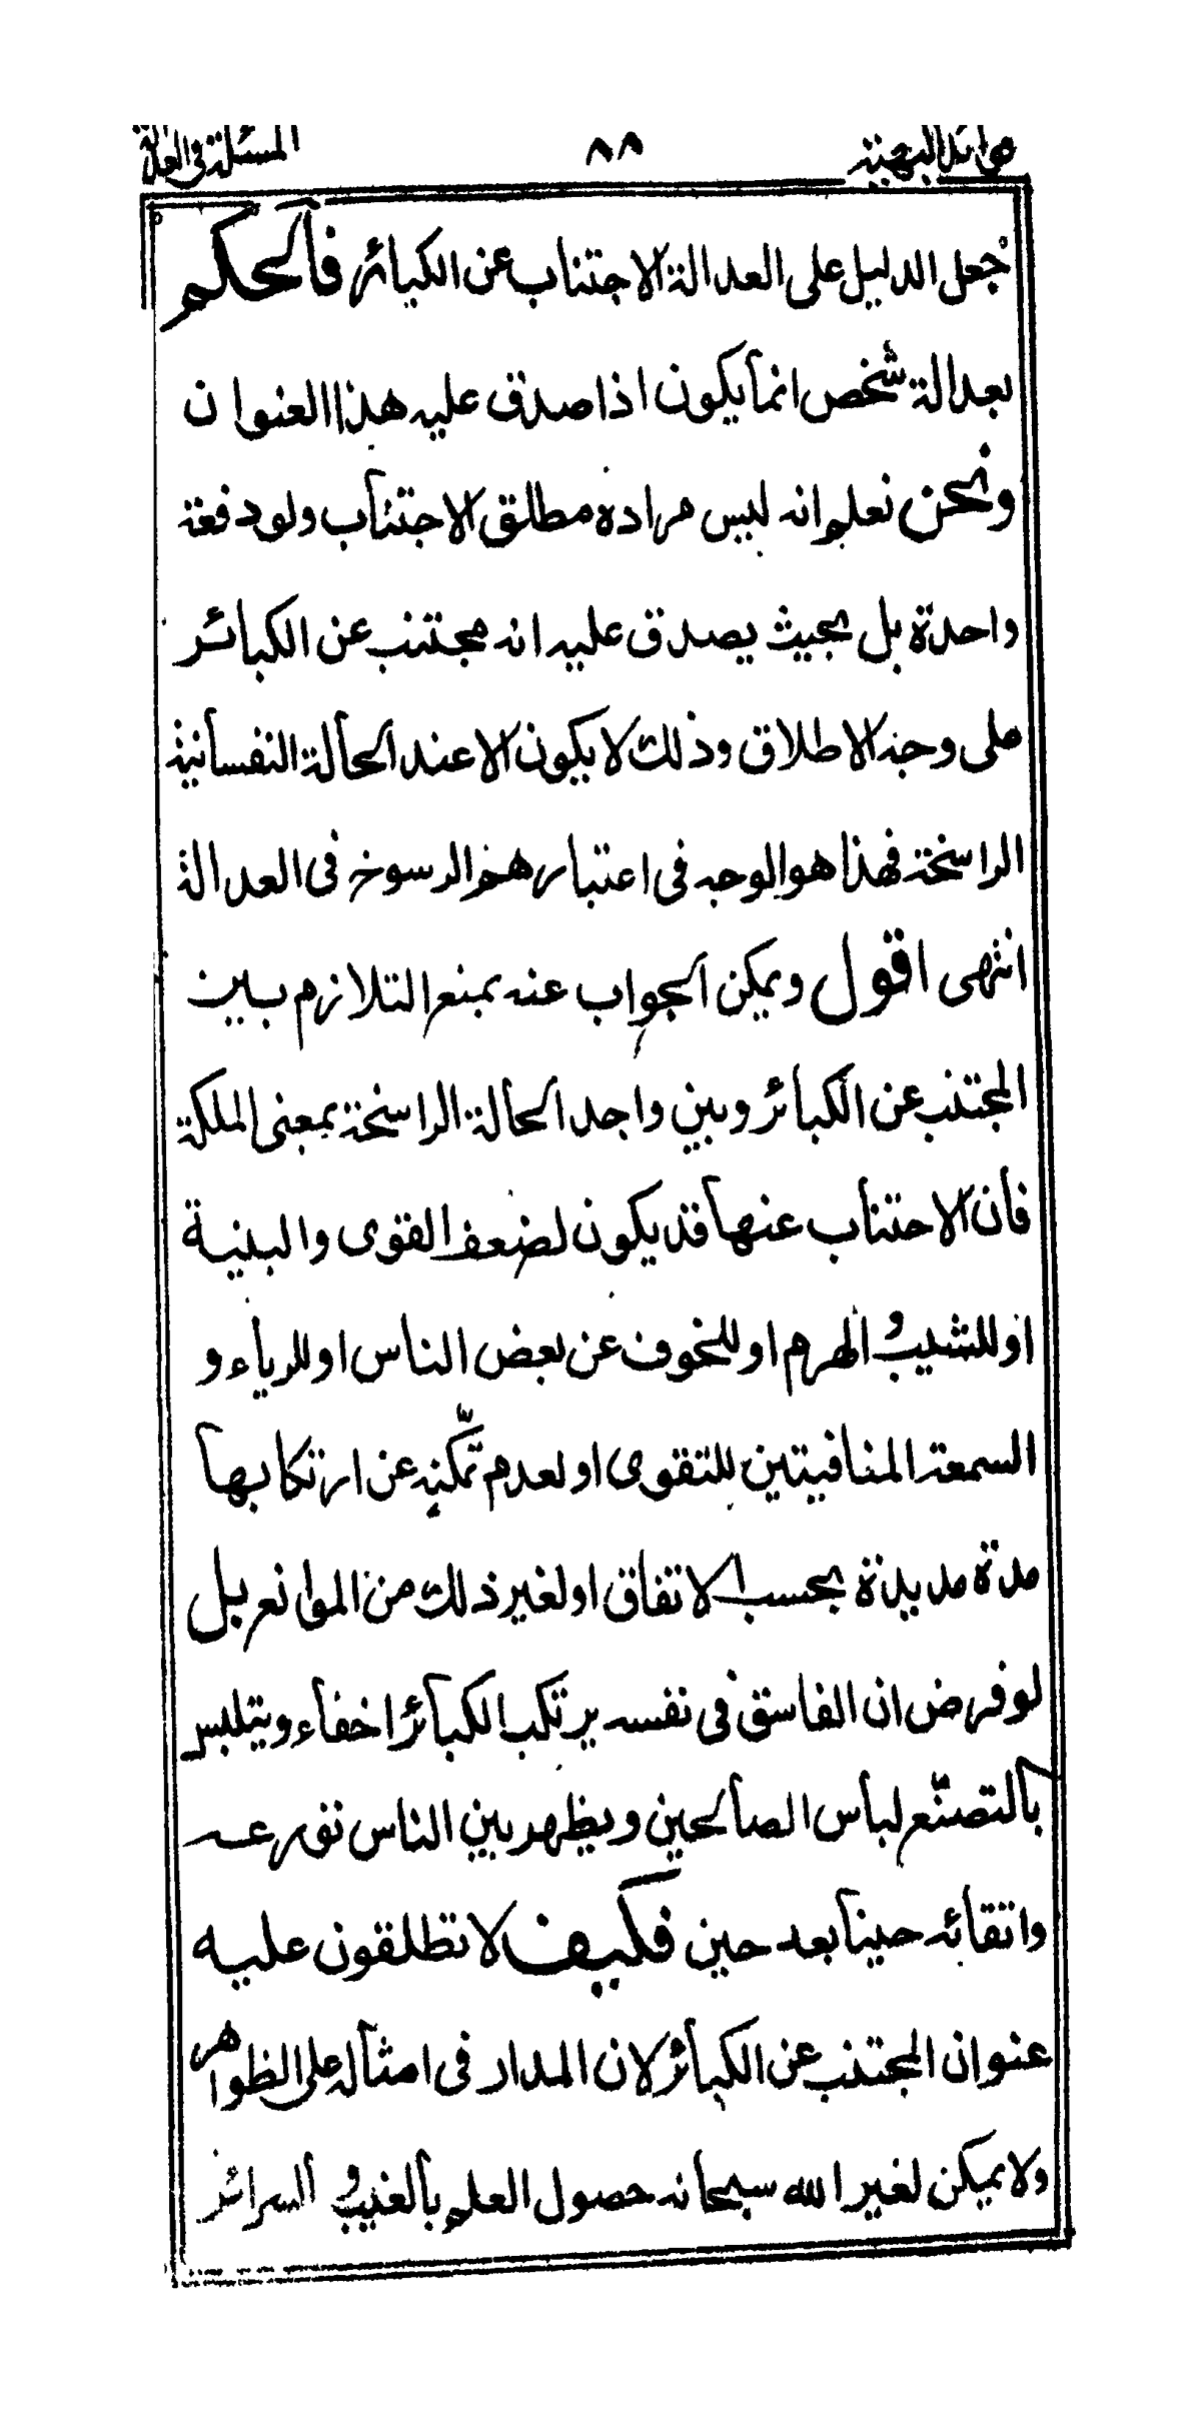 موائد البهية ٨٨ المسئلة فى العدالة
جعل الدليل على العدالة الاجتناب عن الكبائر فالحكم
بعدالة شخص انما يكون اذا صدق عليه هذا العنوان
ونحن نعلم انه ليس مراده مطلق الاجتناب ولو دفعة
واحدة بل بحيث يصدق عليه انه مجتنب عن الكبائر
على وجه الاطلاق وذلك لا يكون الا عند الحالة النفسانية
الراسخة فهذا هو الوجه فى اعتبارهم الرسوخ فى العدالة
انتهى اقول ويمكن الجواب عنه بمنع التلازم بين
المجتنب عن الكبائر وبين واجد الحالة الراسخة بمعنى الملكة
فان الاجتناب عنها قد يكون لضعف القوى والبنية
او للشيب و الهرم او للخوف عن بعض الناس او للرياء و
السمعة المنافيتين للتقوى او لعدم تمكّنه عن ارتكابها
مدة مديدة بحسب الاتفاق او لغير ذلك من الموانع بل
لو فرض ان الفاسق فى نفسه يرتكب الكبائر اخفاء ويتلبس
بالتصنّع لباس الصالحين ويظهر بين الناس تورعه
واتقائه حينا بعد حين فكيف لا تطلقون عليه
عنوان المجتنب عن الكبائر لان المدار فى امثاله على الظواهر
ولا يمكن لغير الله سبحانه حصول العلم بالغيب و السرائر